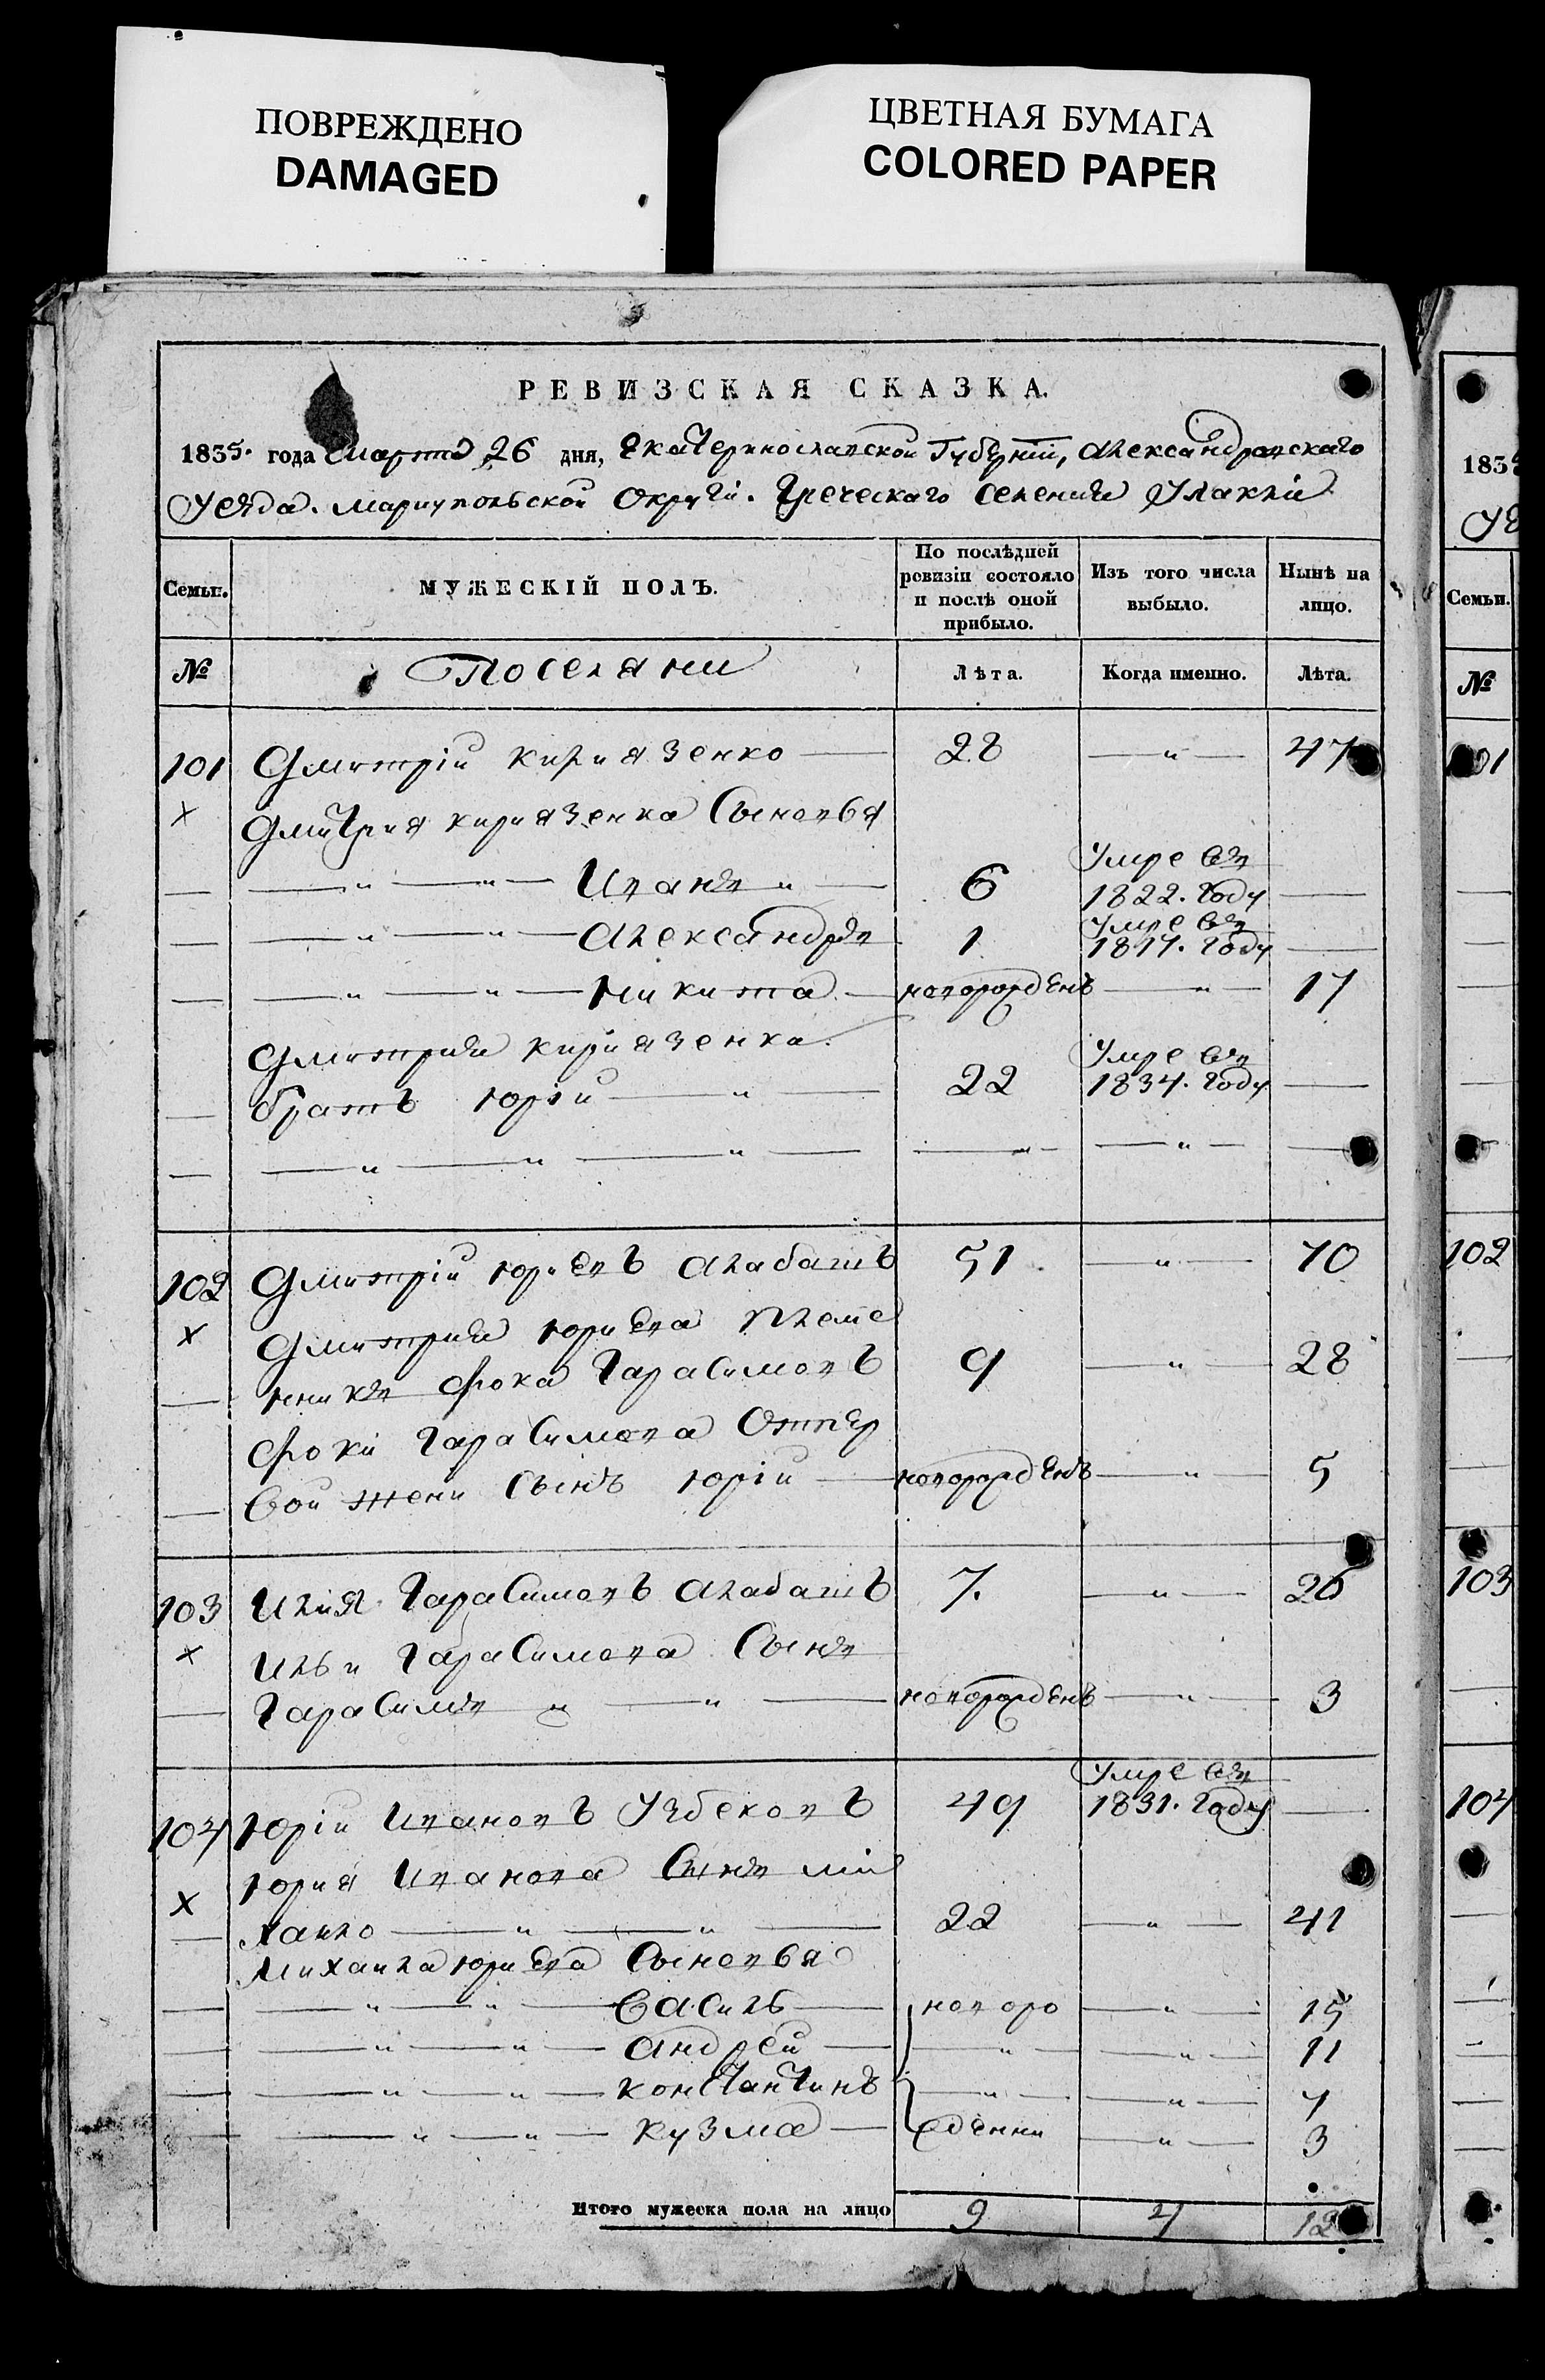 ПОВРЕЖДЕНО
DAMAGED
ЦВЕТНАЯ БУМАГА
COLORED PAPER
РЕВИЗСКАЯ СКАЗКА.
1835. года Марта 26 дня, Екатеринославской Губернии, Александровскаго
Уезда. Мариупольской Округи. Греческаго Селения Улаклы
Семьи. МУЖЕСКІЙ ПОЛЪ. По послѣдней ревизіи состояло и послѣ оной прибыло. Изъ того числа выбыло. Нынѣ на лицо.
№ Поселяни Лѣта. Когда именно. Лѣта.
101 Дмитрій Кириязенко 28 — " — 47
х Дмитрия Кириязенка Сыновья
— " — " — Иванъ " — 6 Умре въ 1822. Году —
— " — " — Александръ 1 Умре въ 1817. Году —
— " — " — Никита новорожденъ — " — 17
Дмитрия Кириязенка
братъ Юрій — " — 22 Умре въ 1834. Году —
— " — " — " — — " — — " — —
102 Дмитрій Юриевъ Алабашъ 51 — " — 70
х Дмитрия Юриева племе
нникъ Фока Гарасимовъ 9 — " — 28
Фоки Гарасимова Отпер
вой жени Сынъ Юрій — новорожденъ — " — 5
103 Илия Гарасимовъ Алабашъ 7. — " — 26
х Ильи Гарасимова Сынъ
Гарасимъ " — " — новорожденъ — " — 3
104 Юрій Ивановъ Узбековъ 49 Умре въ 1831. Году —
х Юрия Иванова Сынъ Ми
хаило — " — " — 22 — " — 41
Михаила Юриева Сыновья
— " — " — Василь — новоро — " — 15
— " — " — Андрей — — " — — " — 11
— " — " — Константинъ — " — — " — 7
— " — " — Кузма — ждении — " — 3
Итого мужеска пола на лицо 9 4 12
183
Семьи.
№
101
102
103
104